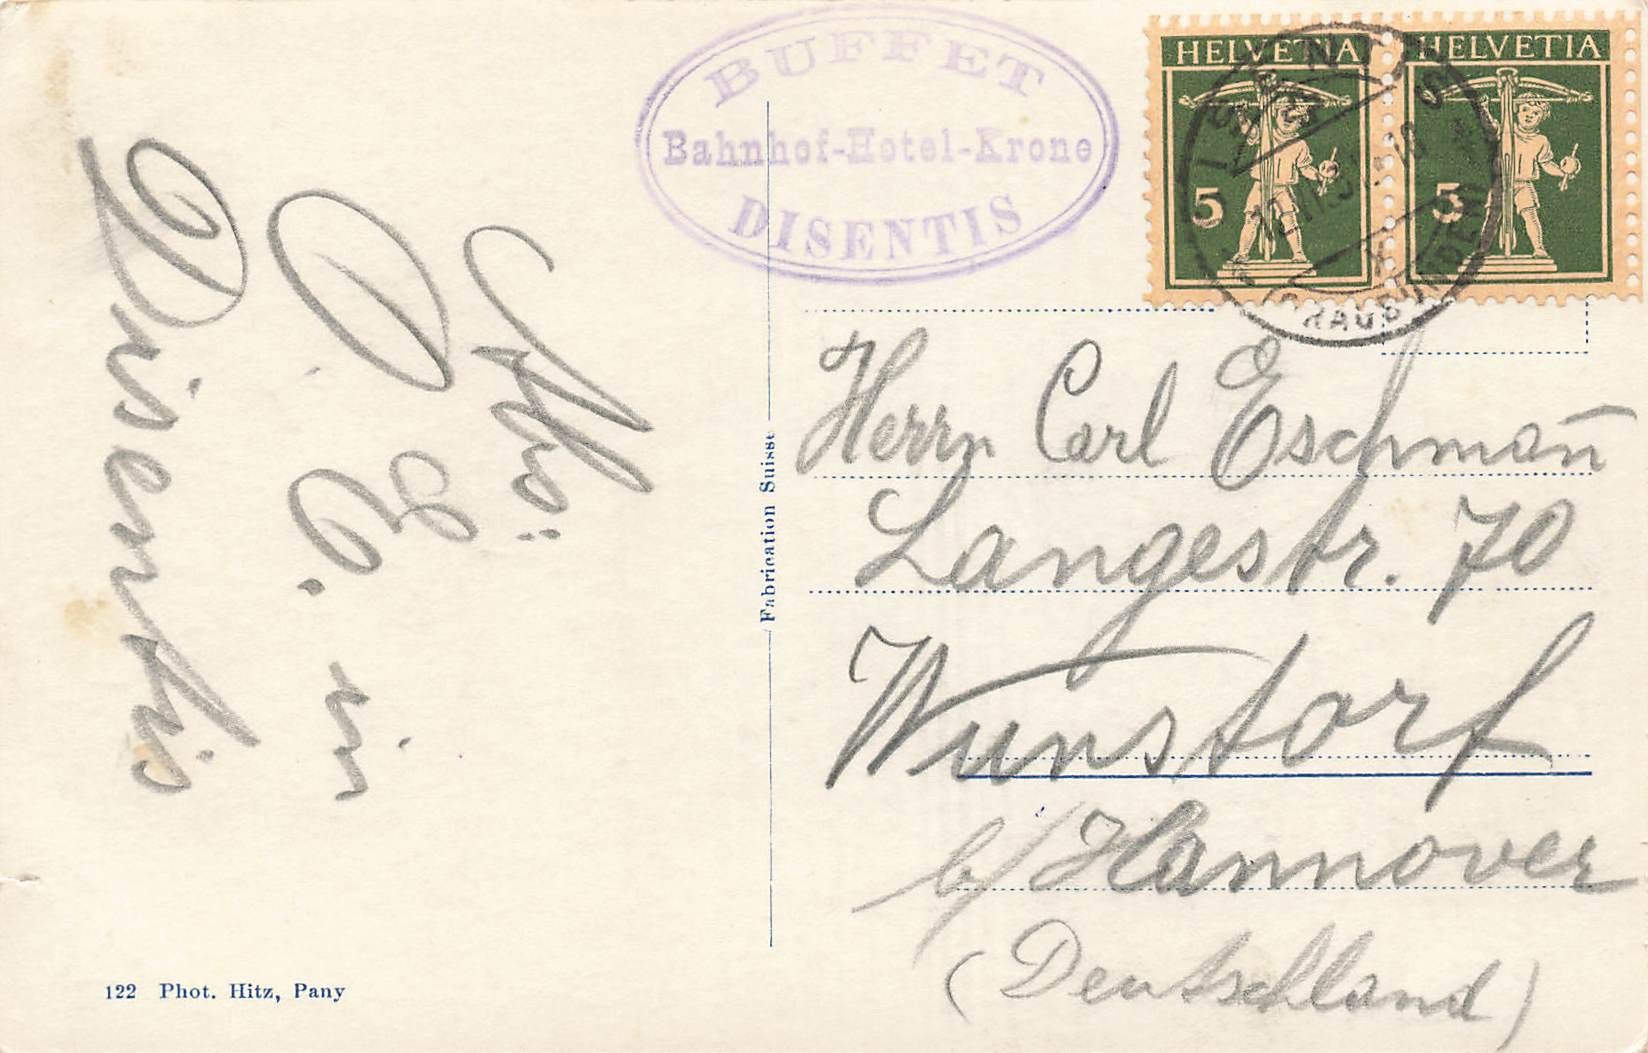 BUFFET
Bahnhof-Hotel-Krone
DISENTIS
HELVETIA
5
HELVETIA
5
Disentis
in
Fabrication Suisse
Herrn Carl Eschman̄
Langestr. 70
Wunstorf
b/Hannover
(Deutschland)
122 Phot. Hitz, Pany